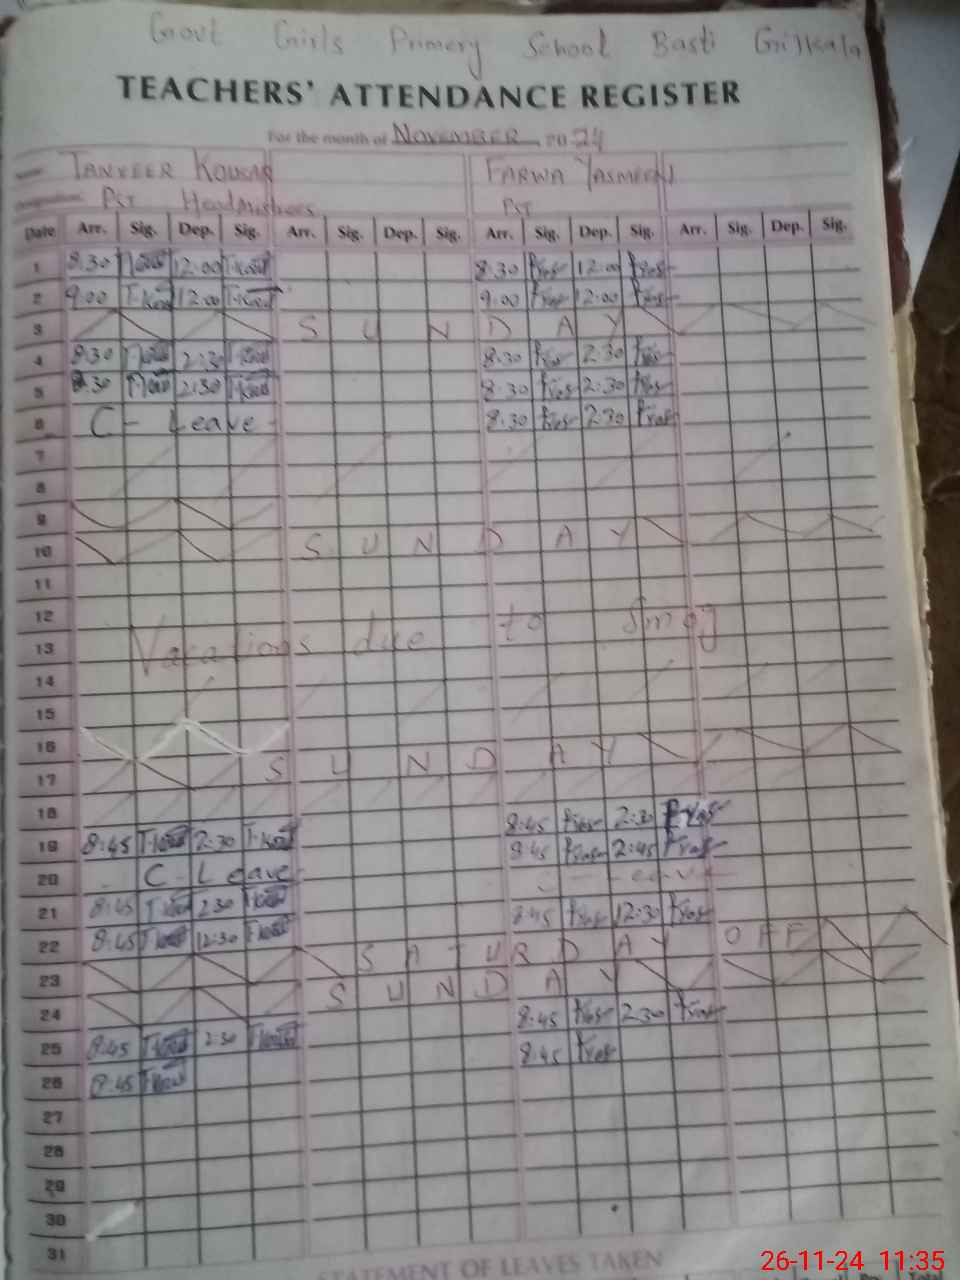 Govt Girls Primery School Basti Gilkala
TEACHERS' ATTENDANCE REGISTER
For the month of NOVEMBER 2024
TANVEER KOUSAR FARWA YASMEEN
PST Headmistress PST
Date Arr. Sig. Dep. Sig. Arr. Sig. Dep. Sig. Arr. Sig. Dep. Sig. Arr. Sig. Dep. Sig.
1 8:30 12:00 T-Kou 8:30 12:00
2 9:00 T-Kou 12:00 T-Kou 9:00 12:00
3 S U N D A Y
4 8:30 2:30 8:30 2:30
5 8:30 2:30 8:30 2:30
6 C- Leave 8:30 2:30
7
8
9
10 S U N D A Y
11
12
13 Vacations due to Smog
14
15
16
17 S U N D A Y
18 8:45 2:30
19 8:45 2:30 8:45 2:45
20 C-Leave C-Leave
21 8:45 2:30 8:45 12:30
22 8:45 12:30
23 S A T U R D A Y OFF
24 S U N D A Y
25 8:45 2:30 8:45 2:30
26 8:45 8:45
27
28
29
30
31
STATEMENT OF LEAVES TAKEN
26-11-24 11:35